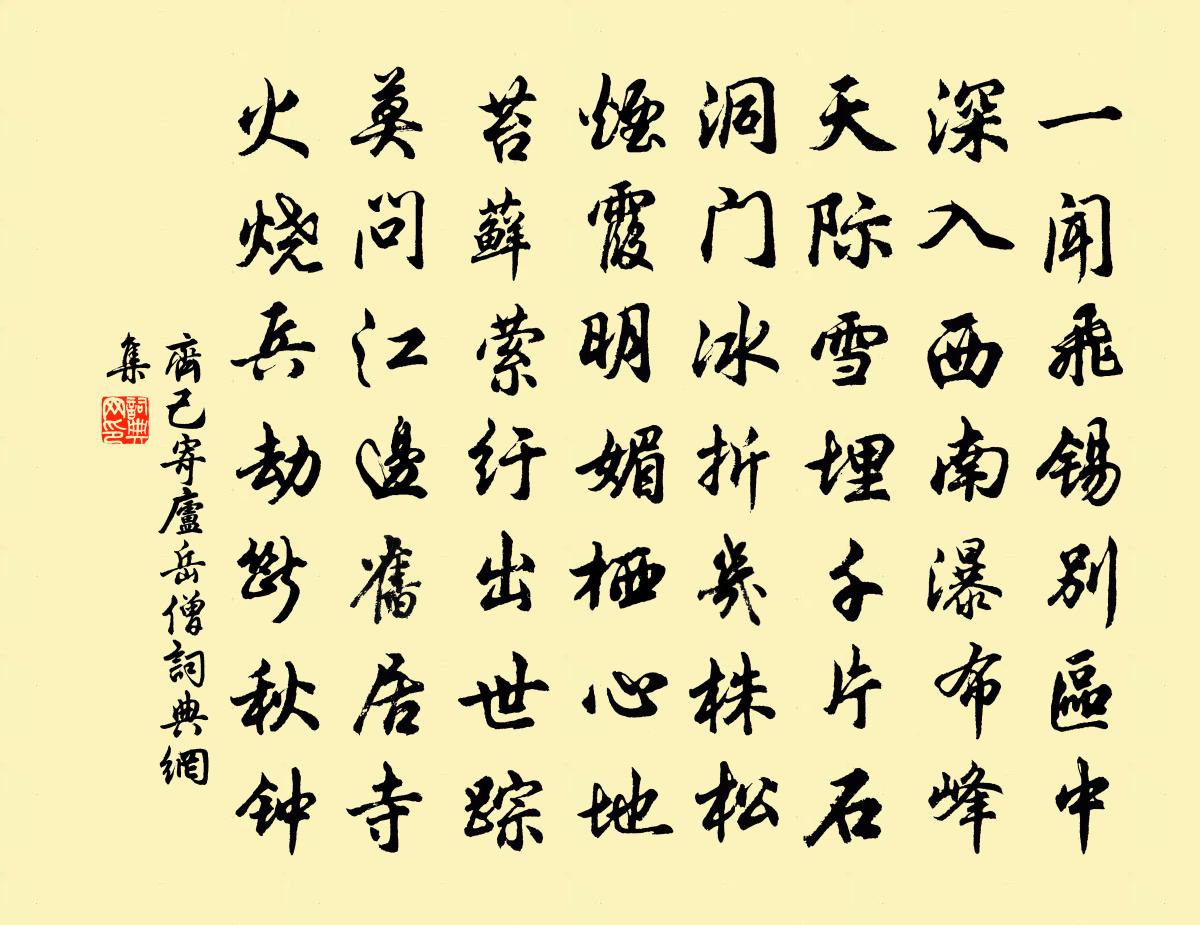 一闻飛锡别區中
深入西南瀑布峰
天际雪埋千片石
洞门冰折幾株松
煙霞明媚栖心地
苔蘚萦纡出世踪
莫问江邊舊居寺
火烧兵劫断秋钟
齊己寄廬岳僧詞典網
集
詞典网印